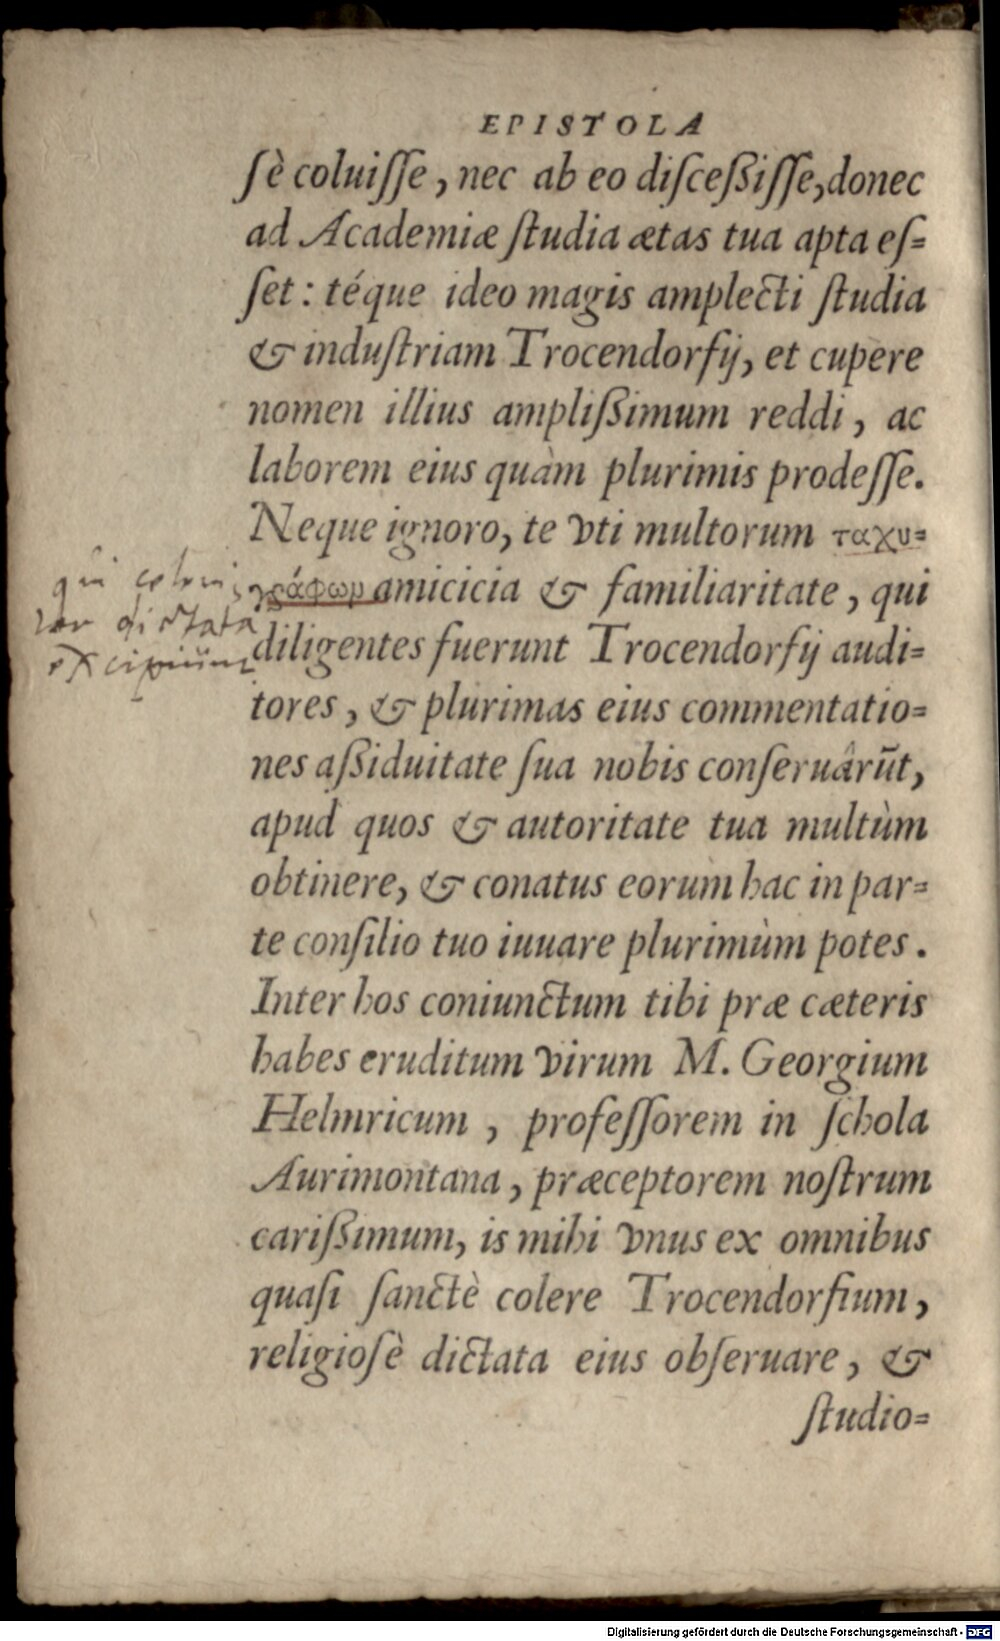 EPISTOLA
ſè coluiſſe, nec ab eo diſceßiſſe, donec
ad Academiæ ſtudia ætas tua apta eſ=
ſet: téque ideo magis amplecti ſtudia
& induſtriam Trocendorfij, et cupere
nomen illius amplißimum reddi, ac
laborem eius quàm plurimis prodeſſe.
Neque ignoro, te vti multorum ταχυ=
γράφωμ amicicia & familiaritate, qui
diligentes fuerunt Trocendorfij audi=
tores, & plurimas eius commentatio=
nes aßiduitate ſua nobis conſeruârūt,
apud quos & autoritate tua multùm
obtinere, & conatus eorum hac in par=
te conſilio tuo iuuare plurimùm potes.
Inter hos coniunctum tibi præ cæteris
habes eruditum virum M. Georgium
Helmricum, profeſſorem in ſchola
Aurimontana, præceptorem noſtrum
carißimum, is mihi vnus ex omnibus
quaſi ſanctè colere Trocendorfium,
religioſè dictata eius obſeruare, &
ſtudio=
qui celeri
ter dictata
excipiūnt
Digitalisierung gefördert durch die Deutsche Forschungsgemeinschaft - DFG